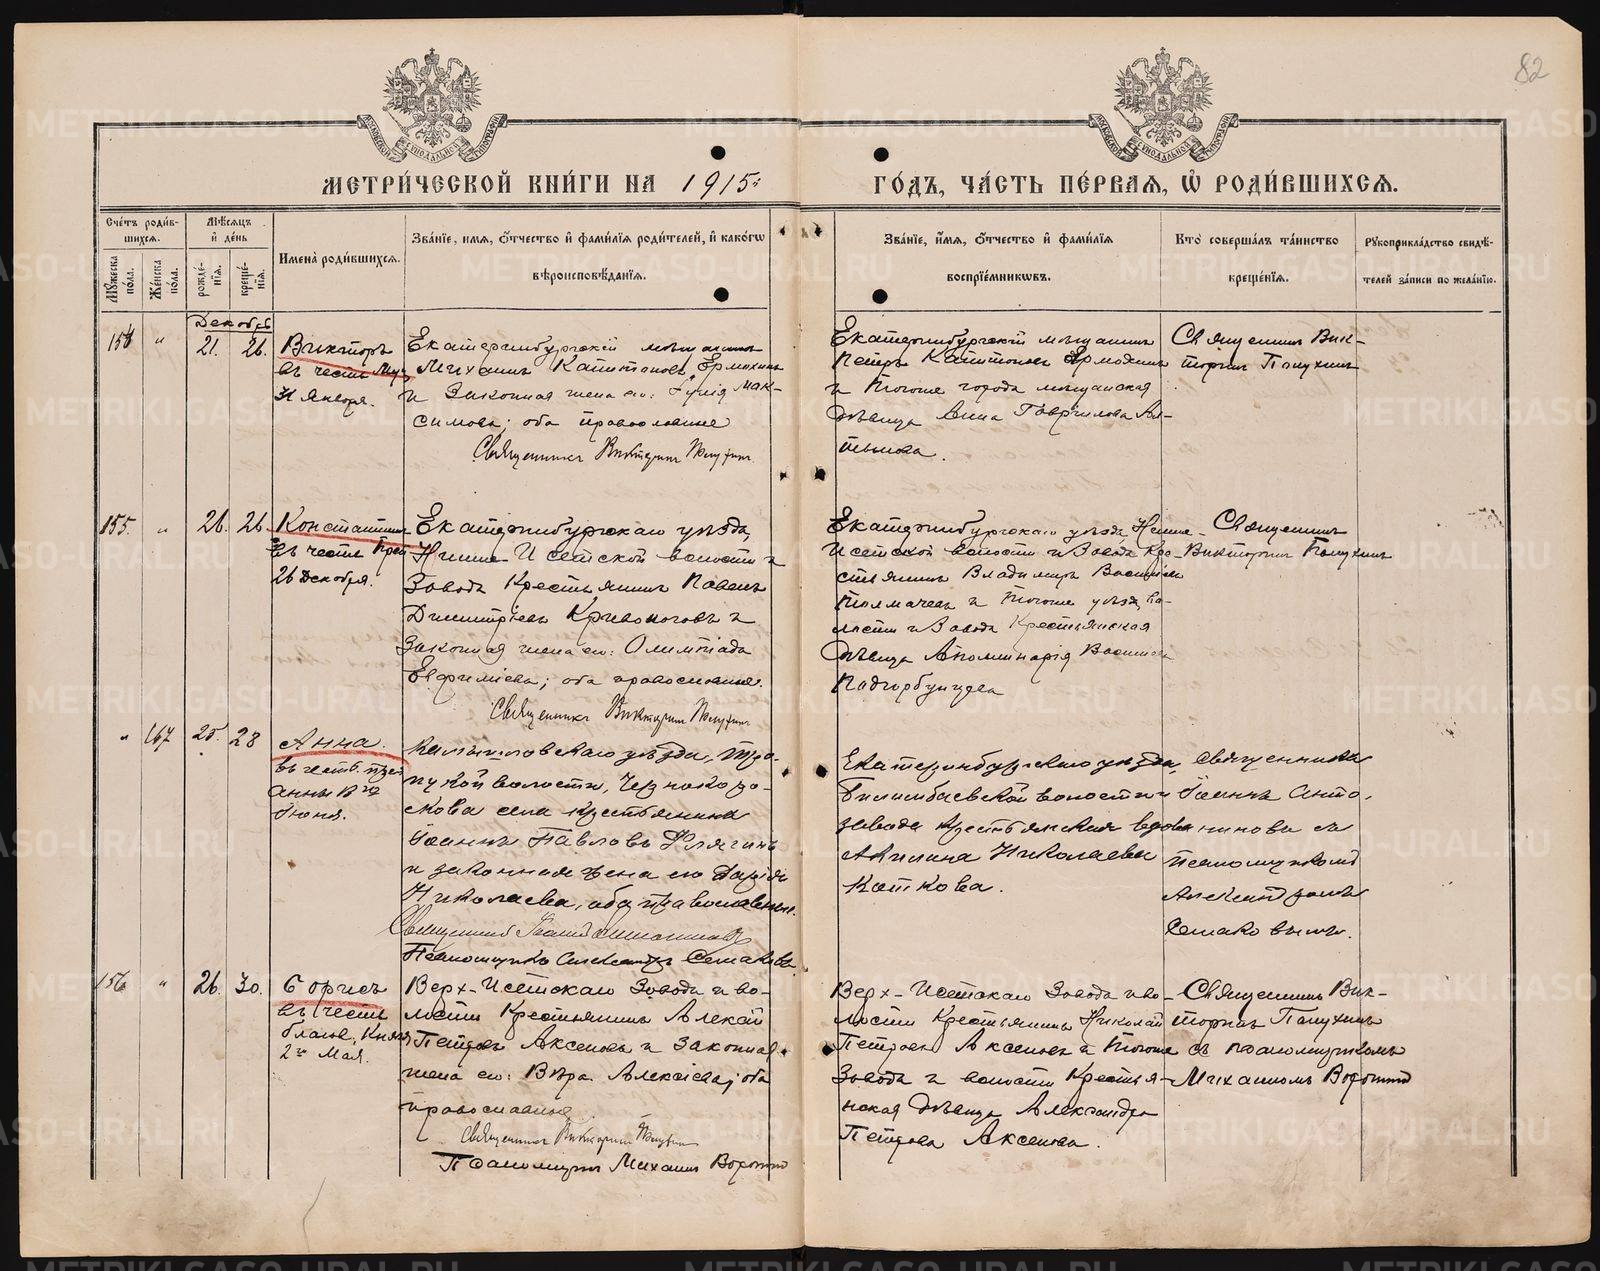 82
МОСКОВСКОЙ СѴНОДАЛЬНОЙ ТИПОГРАФІИ
МОСКОВСКОЙ СѴНОДАЛЬНОЙ ТИПОГРАФІИ
МЕТРИ́ЧЕСКОЙ КНИ́ГИ НА 1915:
ГО́ДЪ, ЧА́СТЬ ПЕ́РВАЯ, Ѡ҆ РОДИ́ВШИХСЯ.
Сче́тъ роди́в-
шихся.
Му́жеска по́ла.
Же́нска по́ла.
Мѣ́сяцъ
и҆ де́нь
рожде́-
нїя.
креще́-
нїя.
Имена̀ роди́вшихся.
Зва́нїе, и҆мя, о҆́тчество и҆ фами́лїя роди́телей, и҆ како́гѡ
вѣроисповѣ́данїя.
Зва́нїе, и҆́мя, о҆́тчество и҆ фами́лїя
воспрїе́мникѡвъ.
Кто̀ соверша́лъ та́инство
креще́нїя.
Рукоприкла́дство свидѣ́-
телей за́писи по жела́нїю.
Декабрь
154 " 21. 26.
Викторъ
въ честь Муч.
31 Января.
Екатеринбургскій мѣщанинъ
Михаилъ Капитоновъ Ермохинъ
и Законная жена его: Іулія Мак-
симова; оба православные
Священникъ Викторинъ Полухинъ.
Екатеринбургскій мѣщанинъ
Петръ Капитоновъ Ермохинъ
и Тогоже города мѣщанская
дѣвица Анна Гавріилова Ал-
тынова.
Священникъ Вик-
торинъ Полухинъ
155. " 26. 26.
Константинъ
въ честь Преп.
26 Декабря.
Екатеринбургскаго уѣзда,
Нижне-Исетской волости и
Завода Крестьянинъ Павелъ
Димитріевъ Кривоноговъ и
Законная жена его: Олимпіада
Евфиміева; оба православные.
Священникъ Викторинъ Полухинъ
Екатеринбургскаго уѣзда, Нижне-
Исетской волости и Завода Кре-
стьянинъ Владиміръ Васильевъ
Толмачевъ и Тогоже уѣзда, во-
лости и Завода Крестьянская
дѣвица Аполлинарія Васильева
Подгорбунцева
Священникъ
Викторинъ Полухинъ
" 167 25 28
Анна.
въ честь прав.
Анны
Камышловскаго уѣзда,
волости, Чернокоро-
скова села крестьянинъ
Іоаннъ Павловъ
и законная жена его Дарія
Николаева, оба православные.
Священникъ Іоаннъ
Псаломщикъ Александръ Семаковъ.
Екатеринбургскаго уѣзда,
Билимбаевской волости и
завода крестьянская вдова
Акилина Николаева
Каткова.
священника
Іоанна Анто-
нинова съ
псаломщикомъ
Александромъ
Семаковымъ.
156 " 26. 30.
Борисъ
въ честь
благов. Князя
2го Мая.
Верх-Исетскаго Завода и во-
лости Крестьянинъ Алексѣй
Петровъ Аксеновъ и Законная
жена его: Вѣра Алексіева; оба
православные
Священникъ Викторинъ Полухинъ
Псаломщикъ Михаилъ
Верх-Исетскаго Завода и во-
лости Крестьянинъ Николай
Петровъ Аксеновъ и Тогоже
Завода и волости Крестья-
нская дѣвица Александра
Петрова Аксенова.
Священникъ Вик-
торинъ Полухинъ
съ псаломщикомъ
Михаиломъ